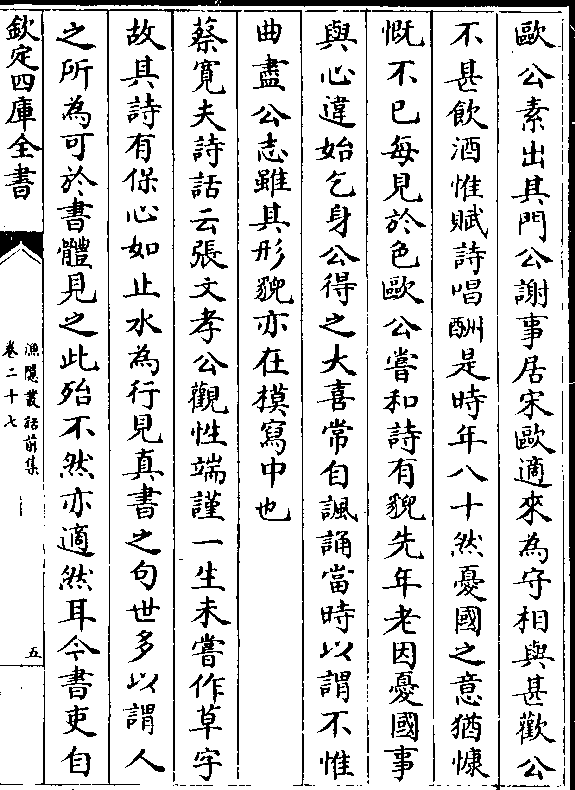 歐公素出其門公謝事居宋歐適來為守相與甚歡公
不甚飲酒惟賦詩唱酬是時年八十然憂國之意猶慷
慨不已每見於色歐公嘗和詩有貌先年老因憂國事
與心違始乞身公得之大喜常自諷誦當時以謂不惟
曲盡公志雖其形貌亦在模寫中也
蔡寬夫詩話云張文孝公觀性端謹一生未嘗作草字
故其詩有保心如止水為行見真書之句世多以謂人
之所為可於書體見之此殆不然亦適然耳今書吏自
欽定四庫全書
漁隱叢話前集
卷二十七
五